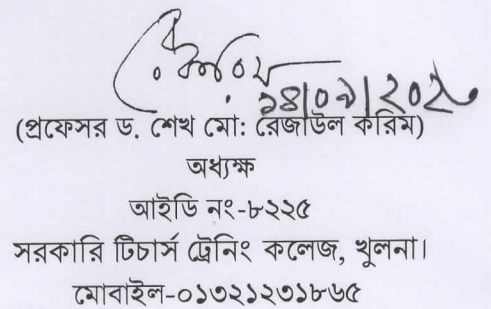 ১৪|০৯|২০২
(প্রফেসর ড. শেখ মো: রেজাউল করিম)
অধ্যক্ষ
আইডি নং-৮২২৫
সরকারি টিচার্স ট্রেনিং কলেজ, খুলনা।
মোবাইল-০১৩২১২৩১৮৬৫